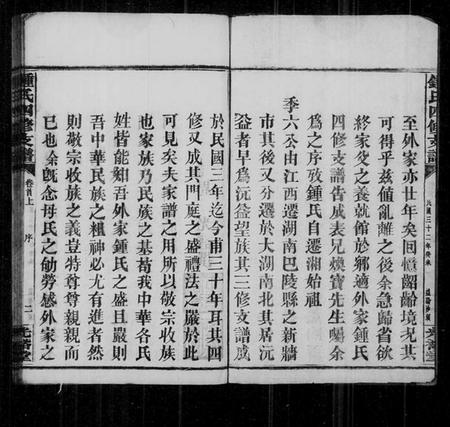 鍾氏四修支譜
民國三十二年癸未
至外家亦廿年矣回憶齠齡境況其
可得乎茲値亂離之後余急歸省欲
終家叟之養就館於鄉適外家鍾氏
四修支譜告成表兄煥寶先生囑余
爲之序攷鍾氏自遷湘始祖
季六公由江西遷湖南巴陵縣之新牆
市其後又分遷於大湖南北其居沅
益者早爲沅益望族其三修支譜成
於民國三年迄今甫三十年耳其四
修又成其門庭之盛禮法之嚴於此
可見矣夫家譜之用所以敬宗收族
也家族乃民族之基苟我中華各氏
姓皆能如吾外家鍾氏之盛且嚴則
吾中華民族之精神必尤有進者然
則敬宗收族之義豈特尊尊親親而
已也余旣念母氏之劬勞感外家之
鍾氏四修支譜
卷首上
序